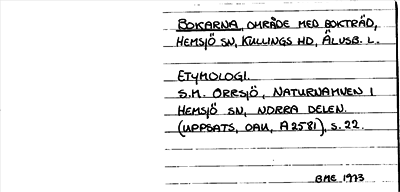 BOKARNA, OMRÅDE MED BOKTRÄD,
HEMSJÖ SN, KULLINGS HD, ÄLVSB. L.
ETYMOLOGI.
S.M. ORRSJÖ, NATURNAMNEN I
HEMSJÖ SN, NORRA DELEN.
(UPPSATS, OAU, A 2581), S. 22.
BME 1973